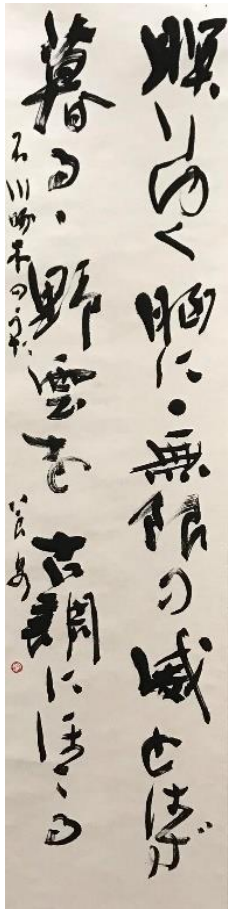 瞑りゆく胸に・無限の威を
暮るゝ野雲を古調に
石川啄木のうた